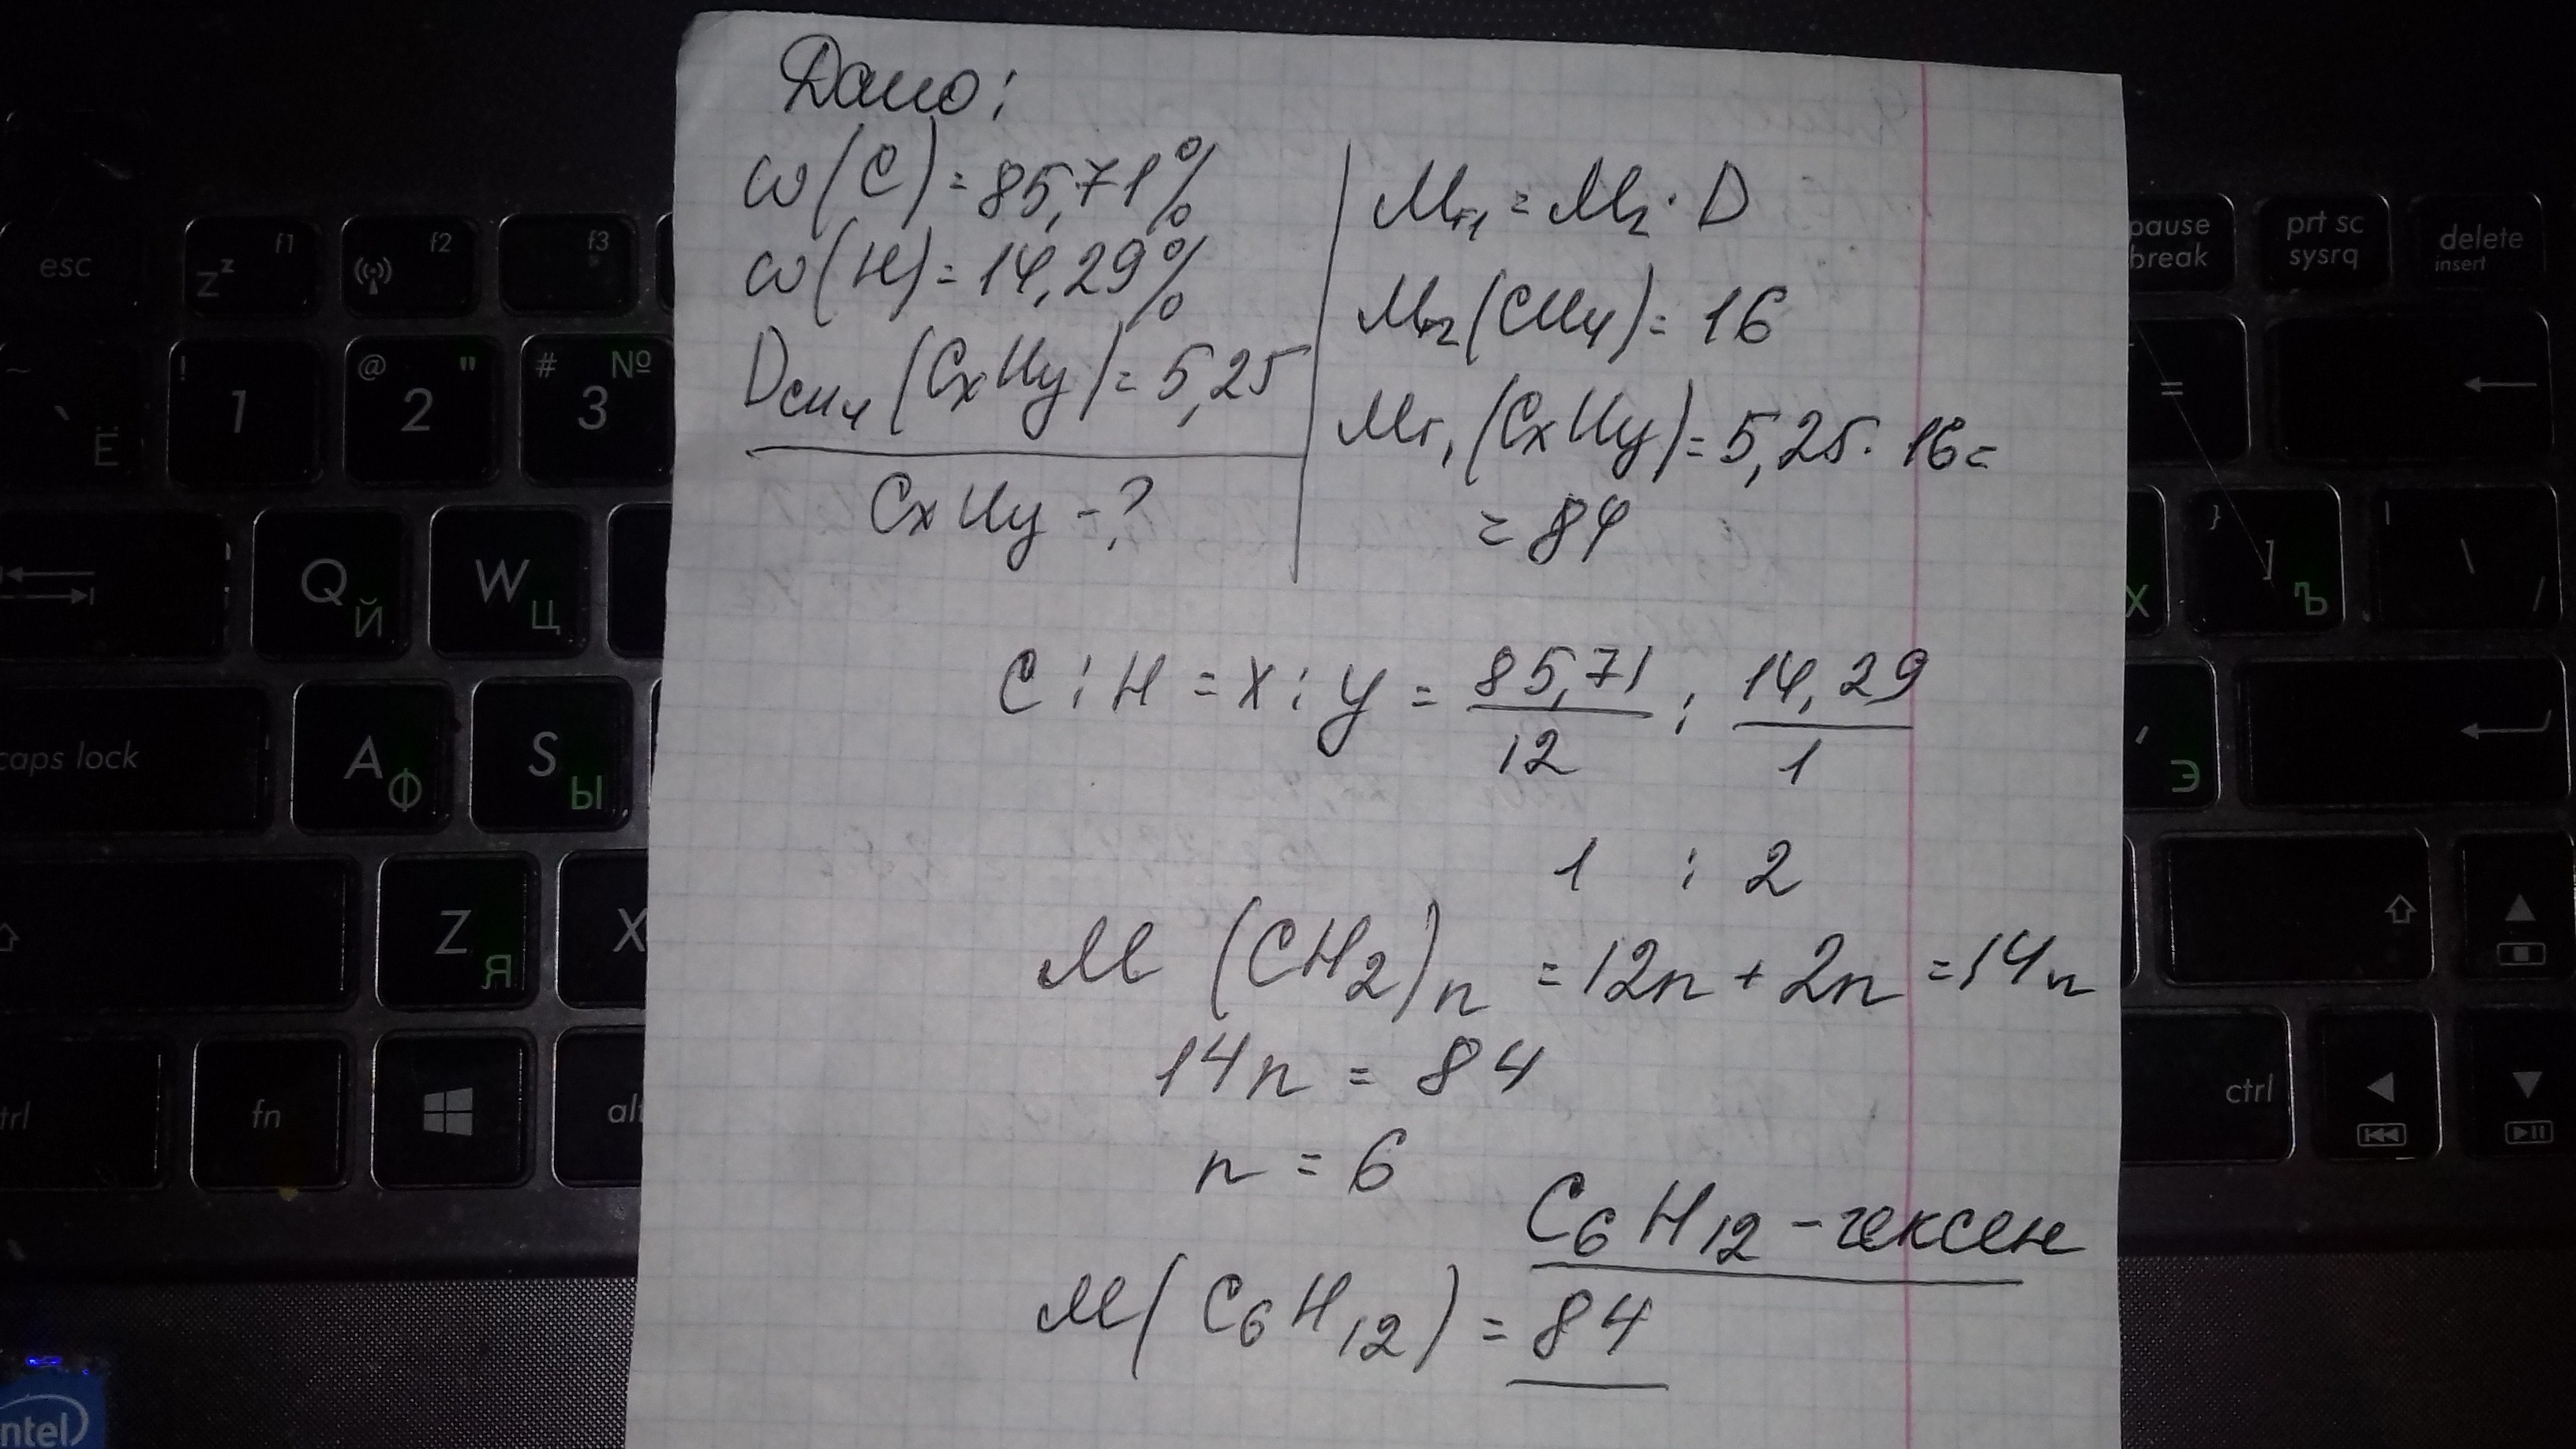 Дано:
ω(C) = 85,71%
ω(H) = 14,29%
DCH4 (CxHy) = 5,25
CxHy - ?
Mr1 = Mr2 · D
Mr2 (CH4) = 16
Mr1 (CxHy) = 5,25 · 16 =
= 84
C : H = x : y = 85,71/12 : 14,29/1
1 : 2
M (CH2)n = 12n + 2n = 14n
14n = 84
n = 6
C6H12 - гексен
M(C6H12) = 84
esc
f1
f2
f3
pause
break
prt sc
sysrq
delete
insert
~ ` Ё
! 1
@ " 2
# № 3
=
Q Й
W Ц
Х
} ] Ъ
| \ /
caps lock
A Ф
S Ы
' Э
Z Я
X
fn
alt
ctrl
intel